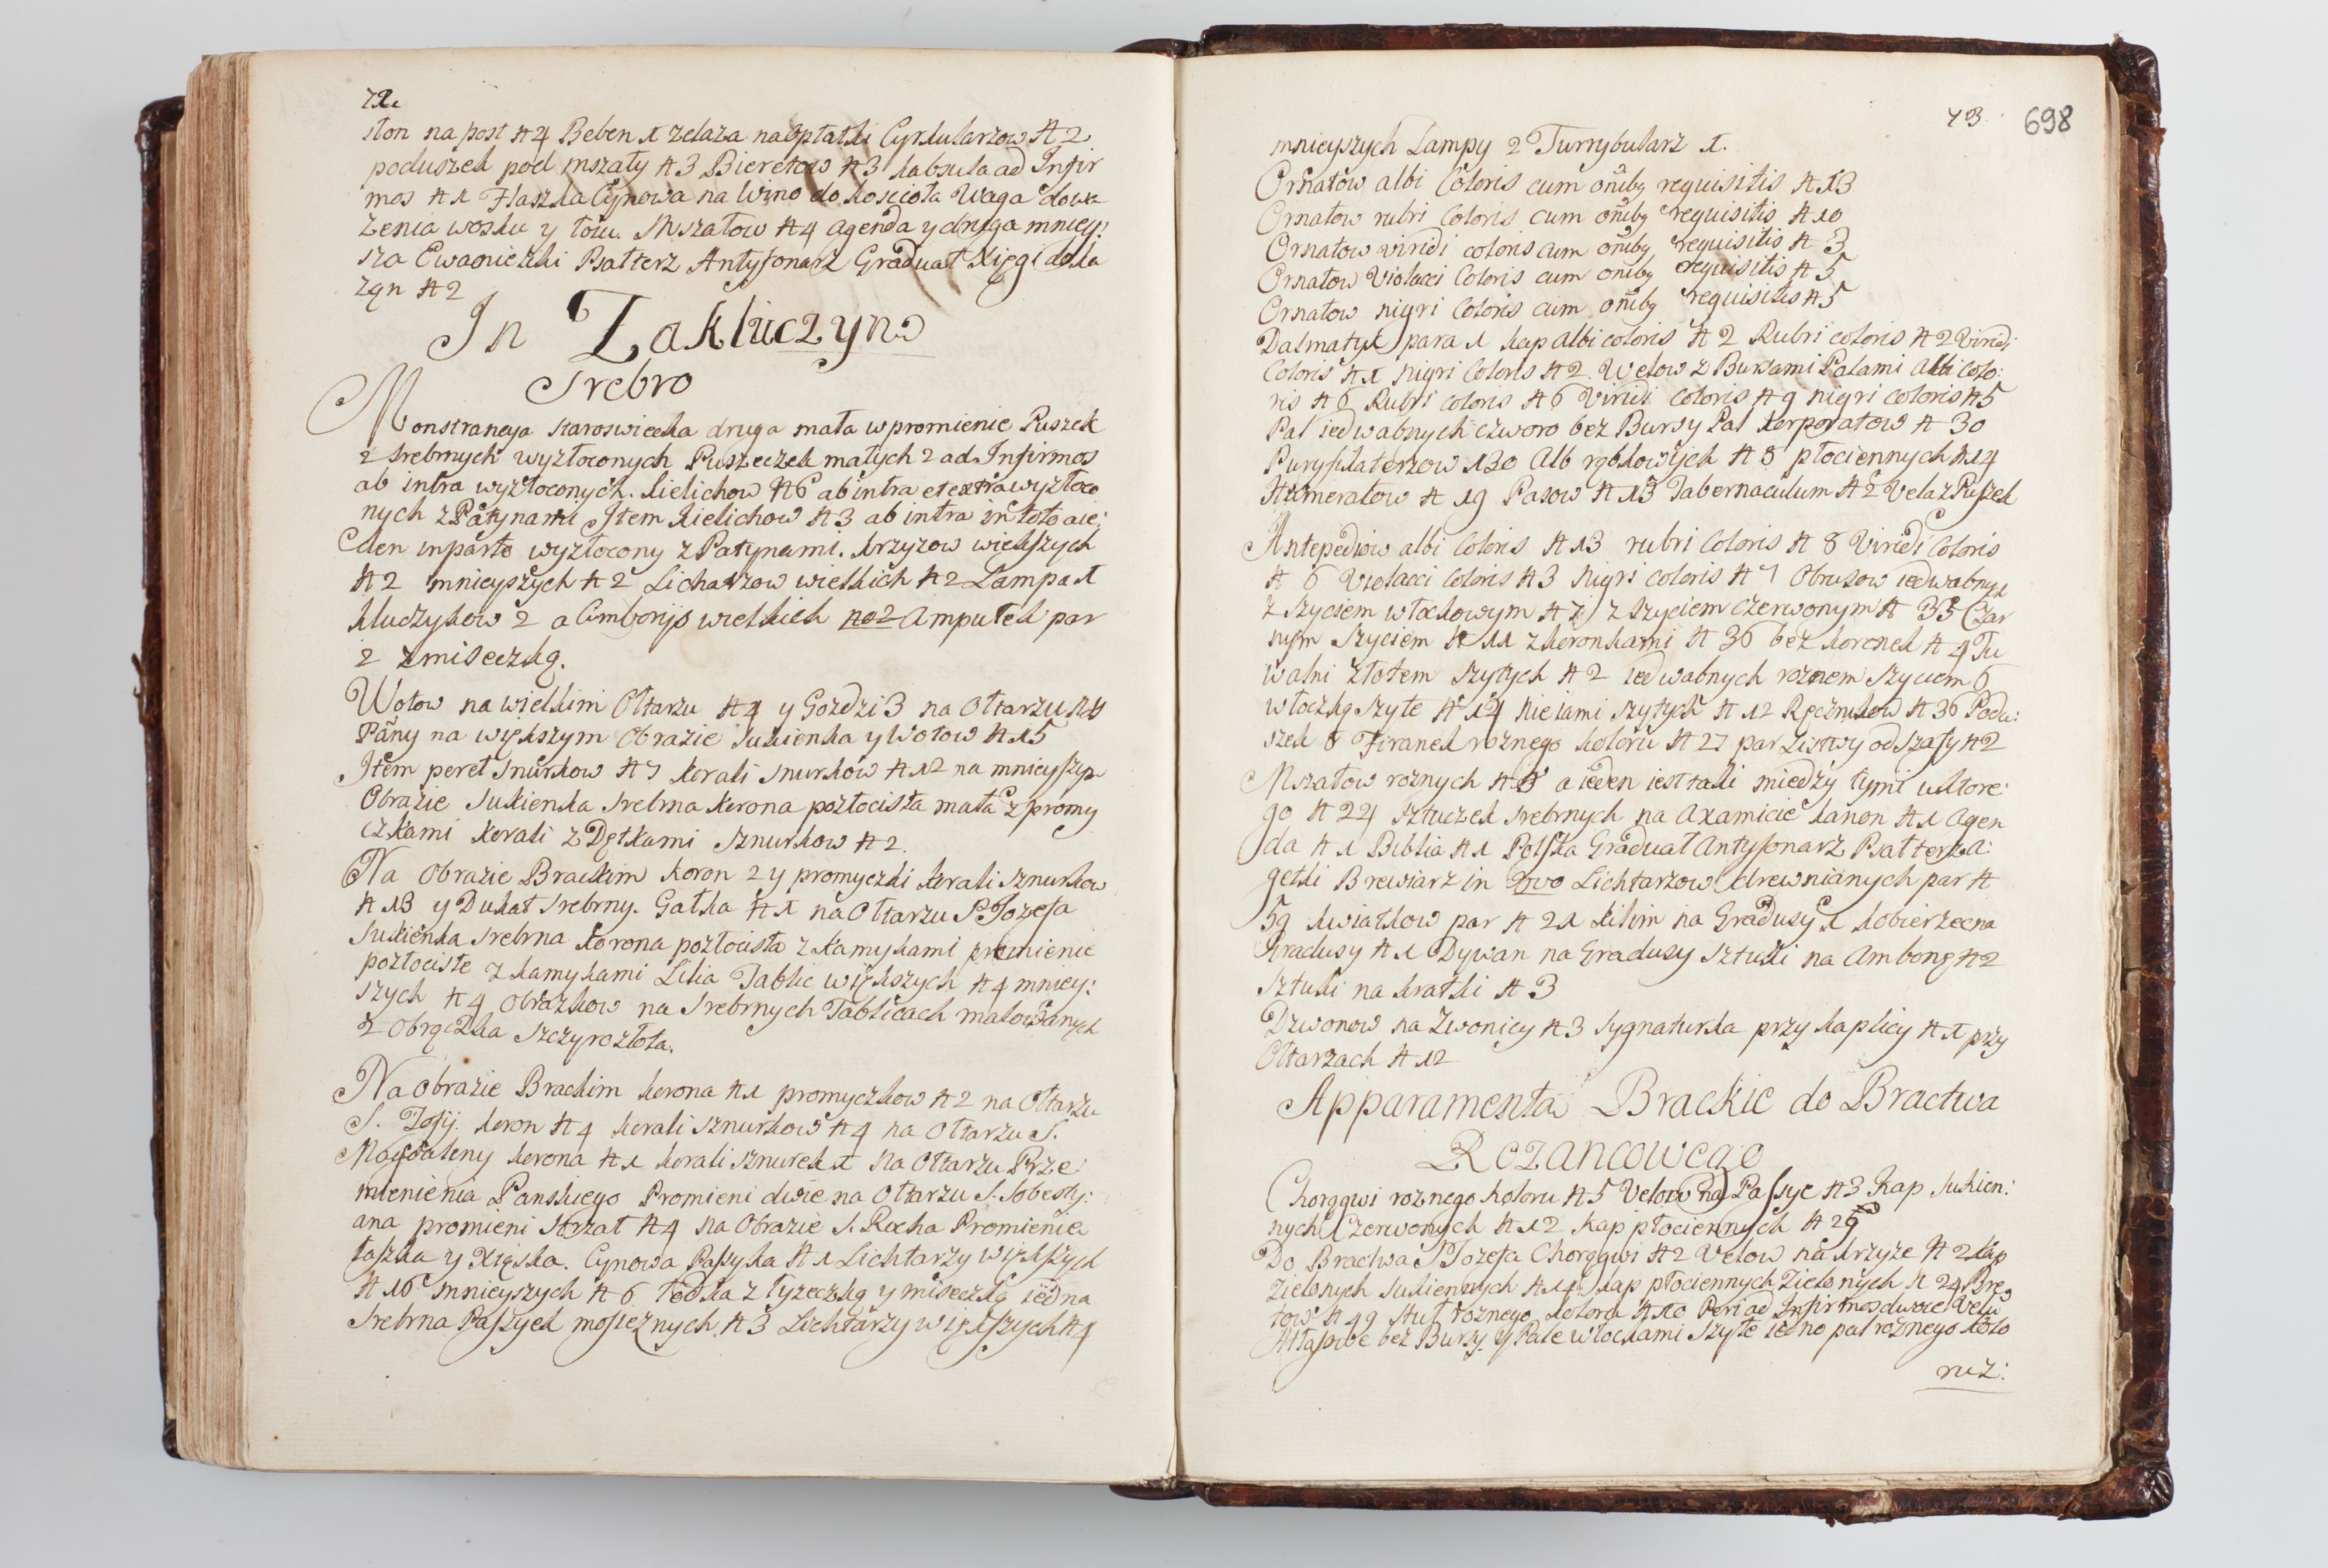 72.
słon na post № 4 Beben 1 zelaza na Opłatki Cyrkularzow № 2
poduszek pod mszały № 3 Bieretow № 3 kabsula ad Infir
mos № 1 Flaszka Cynowa na Wino do koscioła Waga dowa
zenia wosku y łoiu. Mszałow № 4 agenda y druga mniey:
sza Ewaniełiki Psałterz Antyfonarz Graduał Xięgi doka
ząn № 2
In Zakliuczyno
Srebro
Monstrancya staroswiecka druga mała wpromienie Puszek
2 srebrnych wyzłoconych Puszeczek małych 2 ad Infirmos
ab intra wyzłoconych. kielichow № 6 ab intra et extra wyzłoco
nych z Patynami Item kielichow № 3 ab intra in toto aie:
den inparte wyzłocony z Patynami. krzyzow wiekszych
№ 2 mnieyszych № 2 Lichtarzow wielkich № 2 Lampa 1
kluczykow 2 a Cimboryjo wielkich no 2 Ampułek par
2 zmiseczką.
Wotow na wielkim Ołtarzu № 4 y Gozdzi 3 na Ołtarzu N
Pañy na większym Obrazie sukienka y Wotow № 15
Item pereł snurkow № 7 korali snurkow № 12 na mnieyszym
Obrazie sukienka srebrna korona pozłocista mała z promy
czkami korali z Dętkami sznurkow № 2.
Na Obrazie Brackim koron 2 y promyczki korali sznurkow
№ 13 y Dukat srebrny. Gałka № 1 na Ołtarzu S Jozefa
sukienka srebrna korona pozłocista z kamykami promienie
pozłociste z kamykami Lilia Tablic większych № 4 mniey:
szych № 4 obrazkow na srebrnych Tablicach malowanych
2 obrączka szczyrozłota.
Na Obrazie Brackim korona № 1 promyczkow № 2 na Ołtarzu
S. Zofij. koron № 4 korali sznurkow № 4 na Ołtarzu S.
Magdaleny korona № 1 korali sznurek 1 na Ołtarzu Prze
mienienia Panskiego Promieni dwie na Ołtarzu S. Sobesty:
ana promieni strzał № 4 na Obrazie S. Rocha Promienie
laszka y Xiąska. Cynowa Passyka № 1 Lichtarzy większych
№ 16 mnieyszych № 6 łodka z łyzeczką y miseczką iedna
srebrna Passyek mosieznych № 3 Lichtarzy większych № 4
73 698
mnieyszych Lampy 2 Turrybularz 1.
Ornatow albi Coloris cum oñibq requisitis № 13
Ornatow rubri Coloris cum oñibq requisitis № 10
Ornatow viridi coloris cum oñibq requisitis № 3
Ornatow Violacei Coloris cum oñibq requisitis № 5
Ornatow nigri Coloris cum oñibq requisitis № 5
Dalmatyk para 1 kap albi coloris № 2 Rubri coloris № 2 Viridi
Coloris № 1 nigri Coloris № 2. Welow z Bursami Palami Albi Colo:
ris № 6 Rubri coloris № 6 Viridi Coloris № 9 nigri coloris № 5
Pal iedwabnych czworo bez Bursy Pal Korporałow № 30
Puryfikaterzow 130 Alb rąbkowych № 8 płociennych № 14
Humerałow № 19 Pasow № 13 Tabernaculum № 2 Vela z Puszek
Antepediow albi Coloris № 13 rubri Coloris № 8 Viridi Coloris
№ 6 Violacei Coloris № 3 Nigri coloris № 7 Obrusow iedwabnym
z szyciem włoskowym № 7 z szyciem czerwonym № 35 Czar
nym szyciem № 11 z koronkami № 36 bez koronek № 4 Tu
walni złotem szytych № 2 iedwabnych roznem szyciem 6
włoczką szyte № 14 niciami szytych № 12 Ręcznikow № 36 Podu:
szek 8 Firanek roznego koloru № 27 par Listwy od szafy № 2
Mszałow roznych № 8 a ieden iest taki miedzy tymi u ktore:
go № 24 sztuczek srebrnych na axamicie kanon № 1 Agen
da № 1 Biblia № 1 Polska Graduał Antyfonarz Psałterz A:
getki Brewiarz in 2vo Lichtarzow drewnianych par №
59 kwiatkow par № 21 kilim na Gradusy 1 kobierzec na
Gradusy № 1 Dywan na Gradusy sztuki na Ambonę № 2
sztuki na kratki № 3
Dzwonow na Zwonicy № 3 sygnaturka przy kaplicy № 1 przy
Ołtarzach № 12
Apparamenta Brackie do Bractwa
Rozancowego
Chorągwi roznego koloru № 5 Velow na Passye № 3 Kap sukien:
nych Czerwonych № 12 kap płociennych № 29
Do Bractwa S Jozefa Chorągwi № 2 Velow na krzyze № 2 kap
Zielonych sukiennych № 14 kap płociennych Zielonych № 24 Bre
tow № 49 stuł roznego koloru № 10 Peri ad Infirmos dwoie Velu
Atłasowe bez Bursy y Pale włockami szyte iedno pal roznego kolo
ruz: